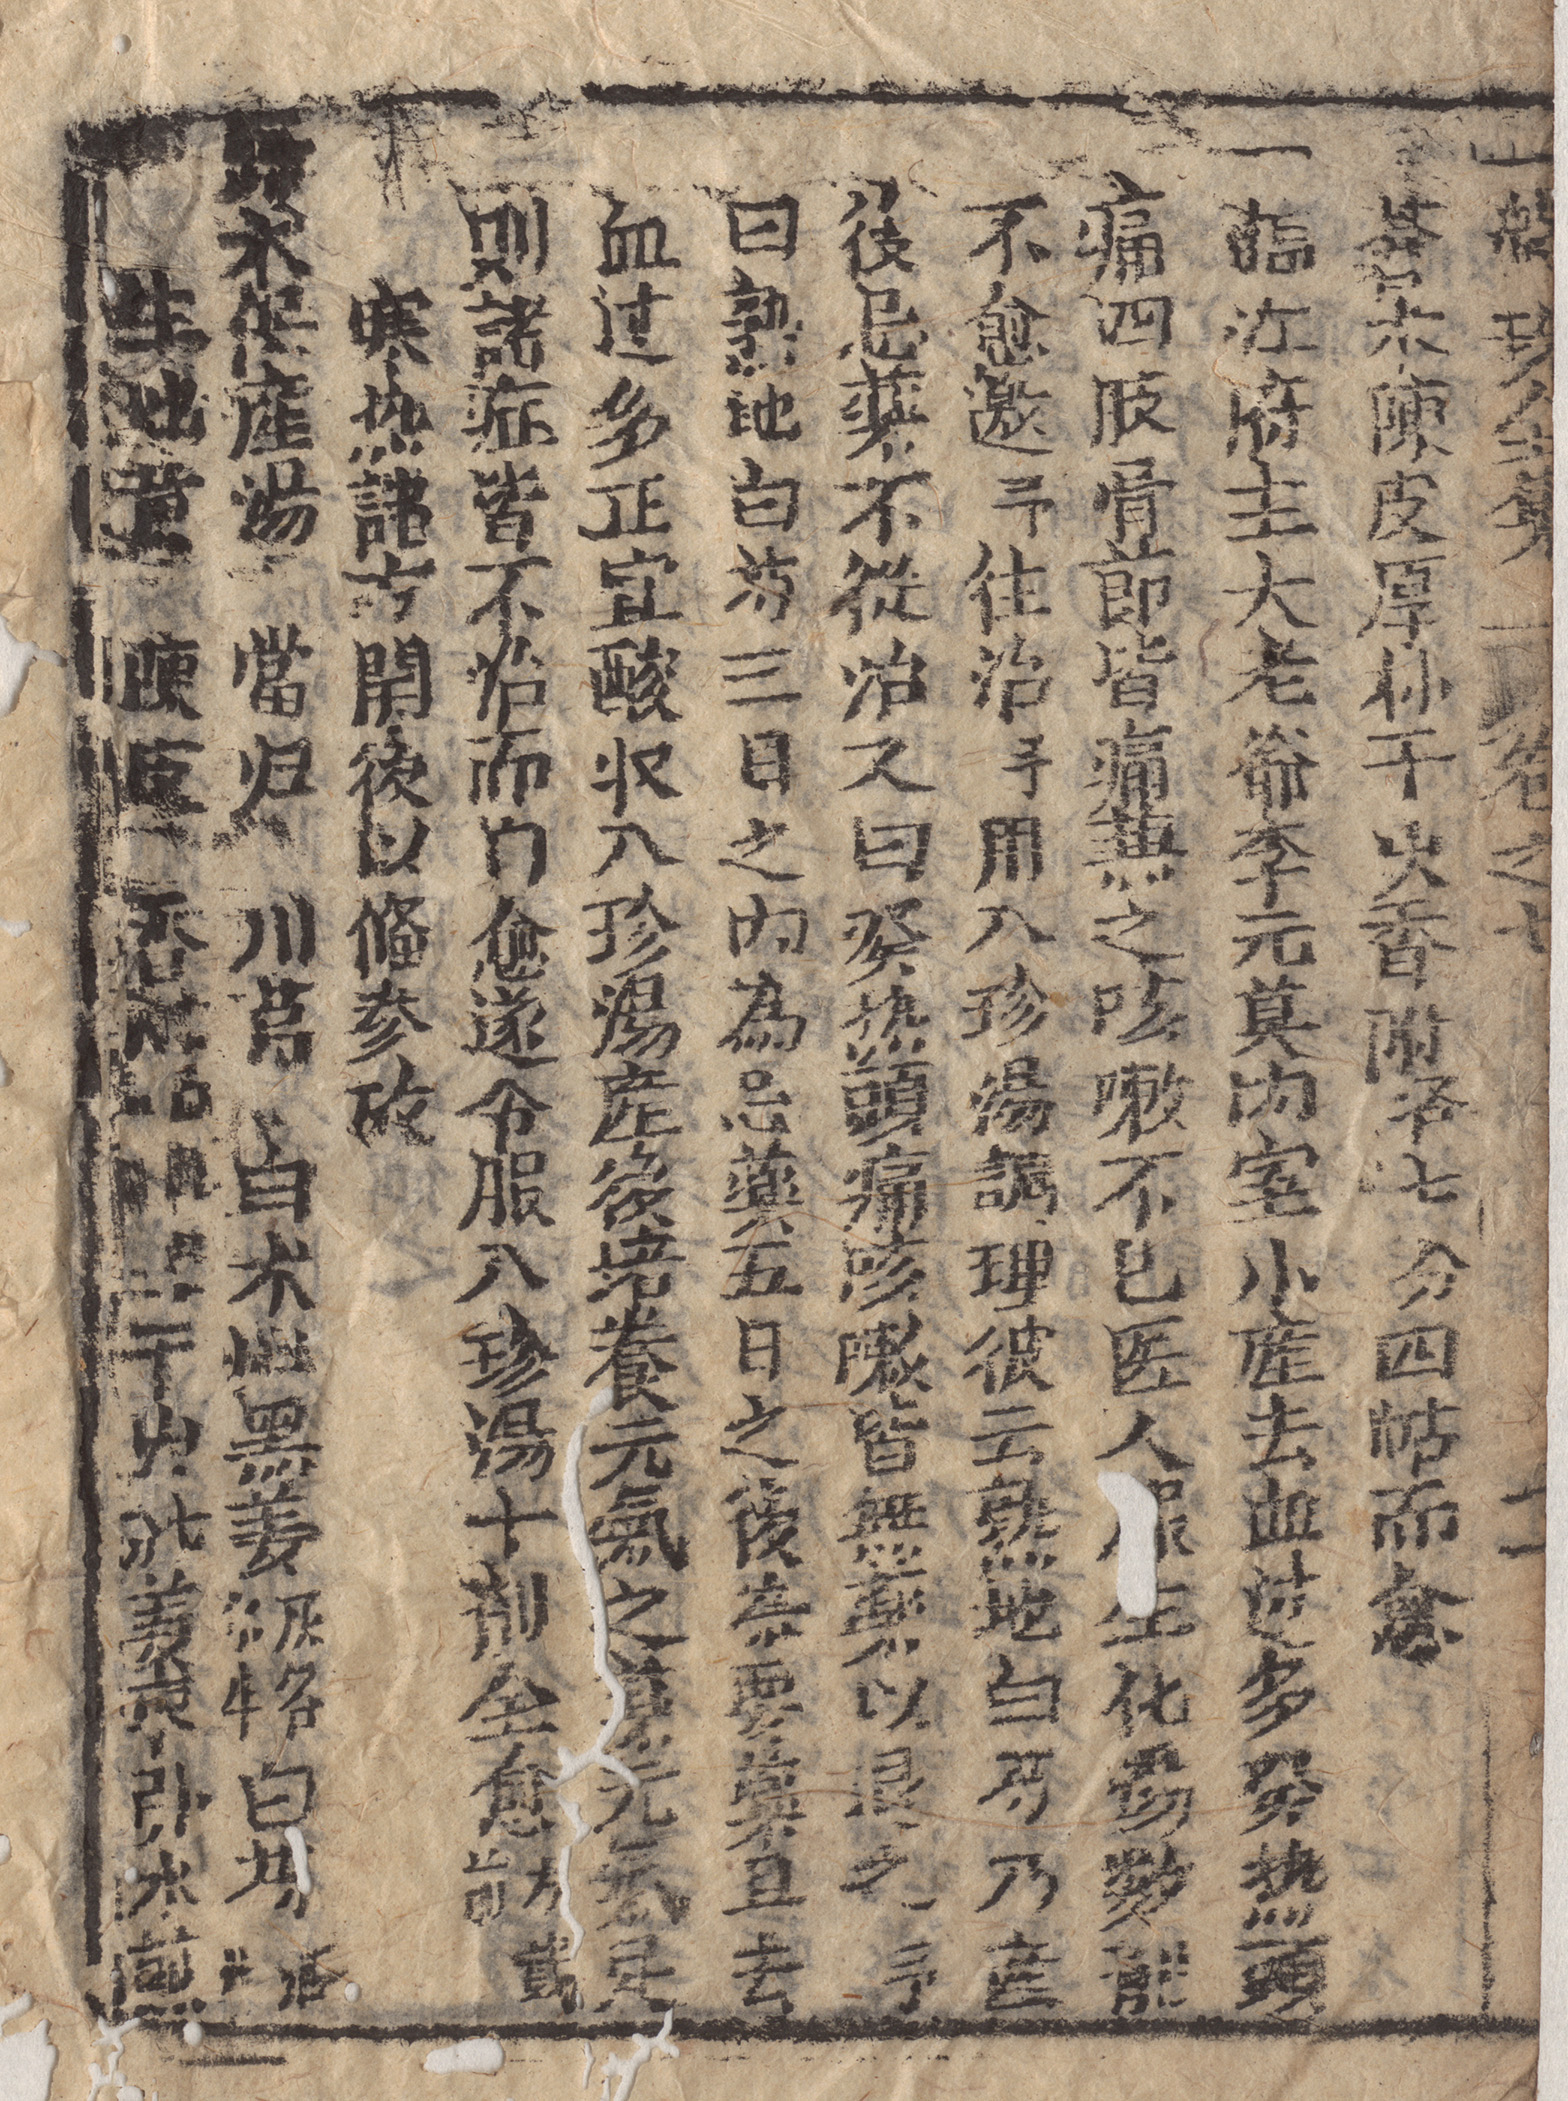 卷之七 二
苓白朮陳皮厚朴干火香附子七分四帖而愈
一臨江府主大老爺李元莫內室小產去血过多癹热頭
痛四肢骨節皆痛兼之咳嗽不已医人服生化湯数劑
不愈邀予往治予用八珍湯調理彼云熟地白芍乃産
後忌藥不從治又曰癹热頭痛咳嗽皆無藥以退之予
曰熟地白芍三日之内為忌藥五日之後為要藥且去
血过多正宜酸收八珍湯産後培養元氣之藥元氣足
則諸症皆不治而自愈遂令服八珍湯十劑全愈
寒热諸方開後以俻参攷
保産湯 當归 川芎 白朮 黑姜 白芍
生地黃 陳皮 香附 干火 姜棗引水煎